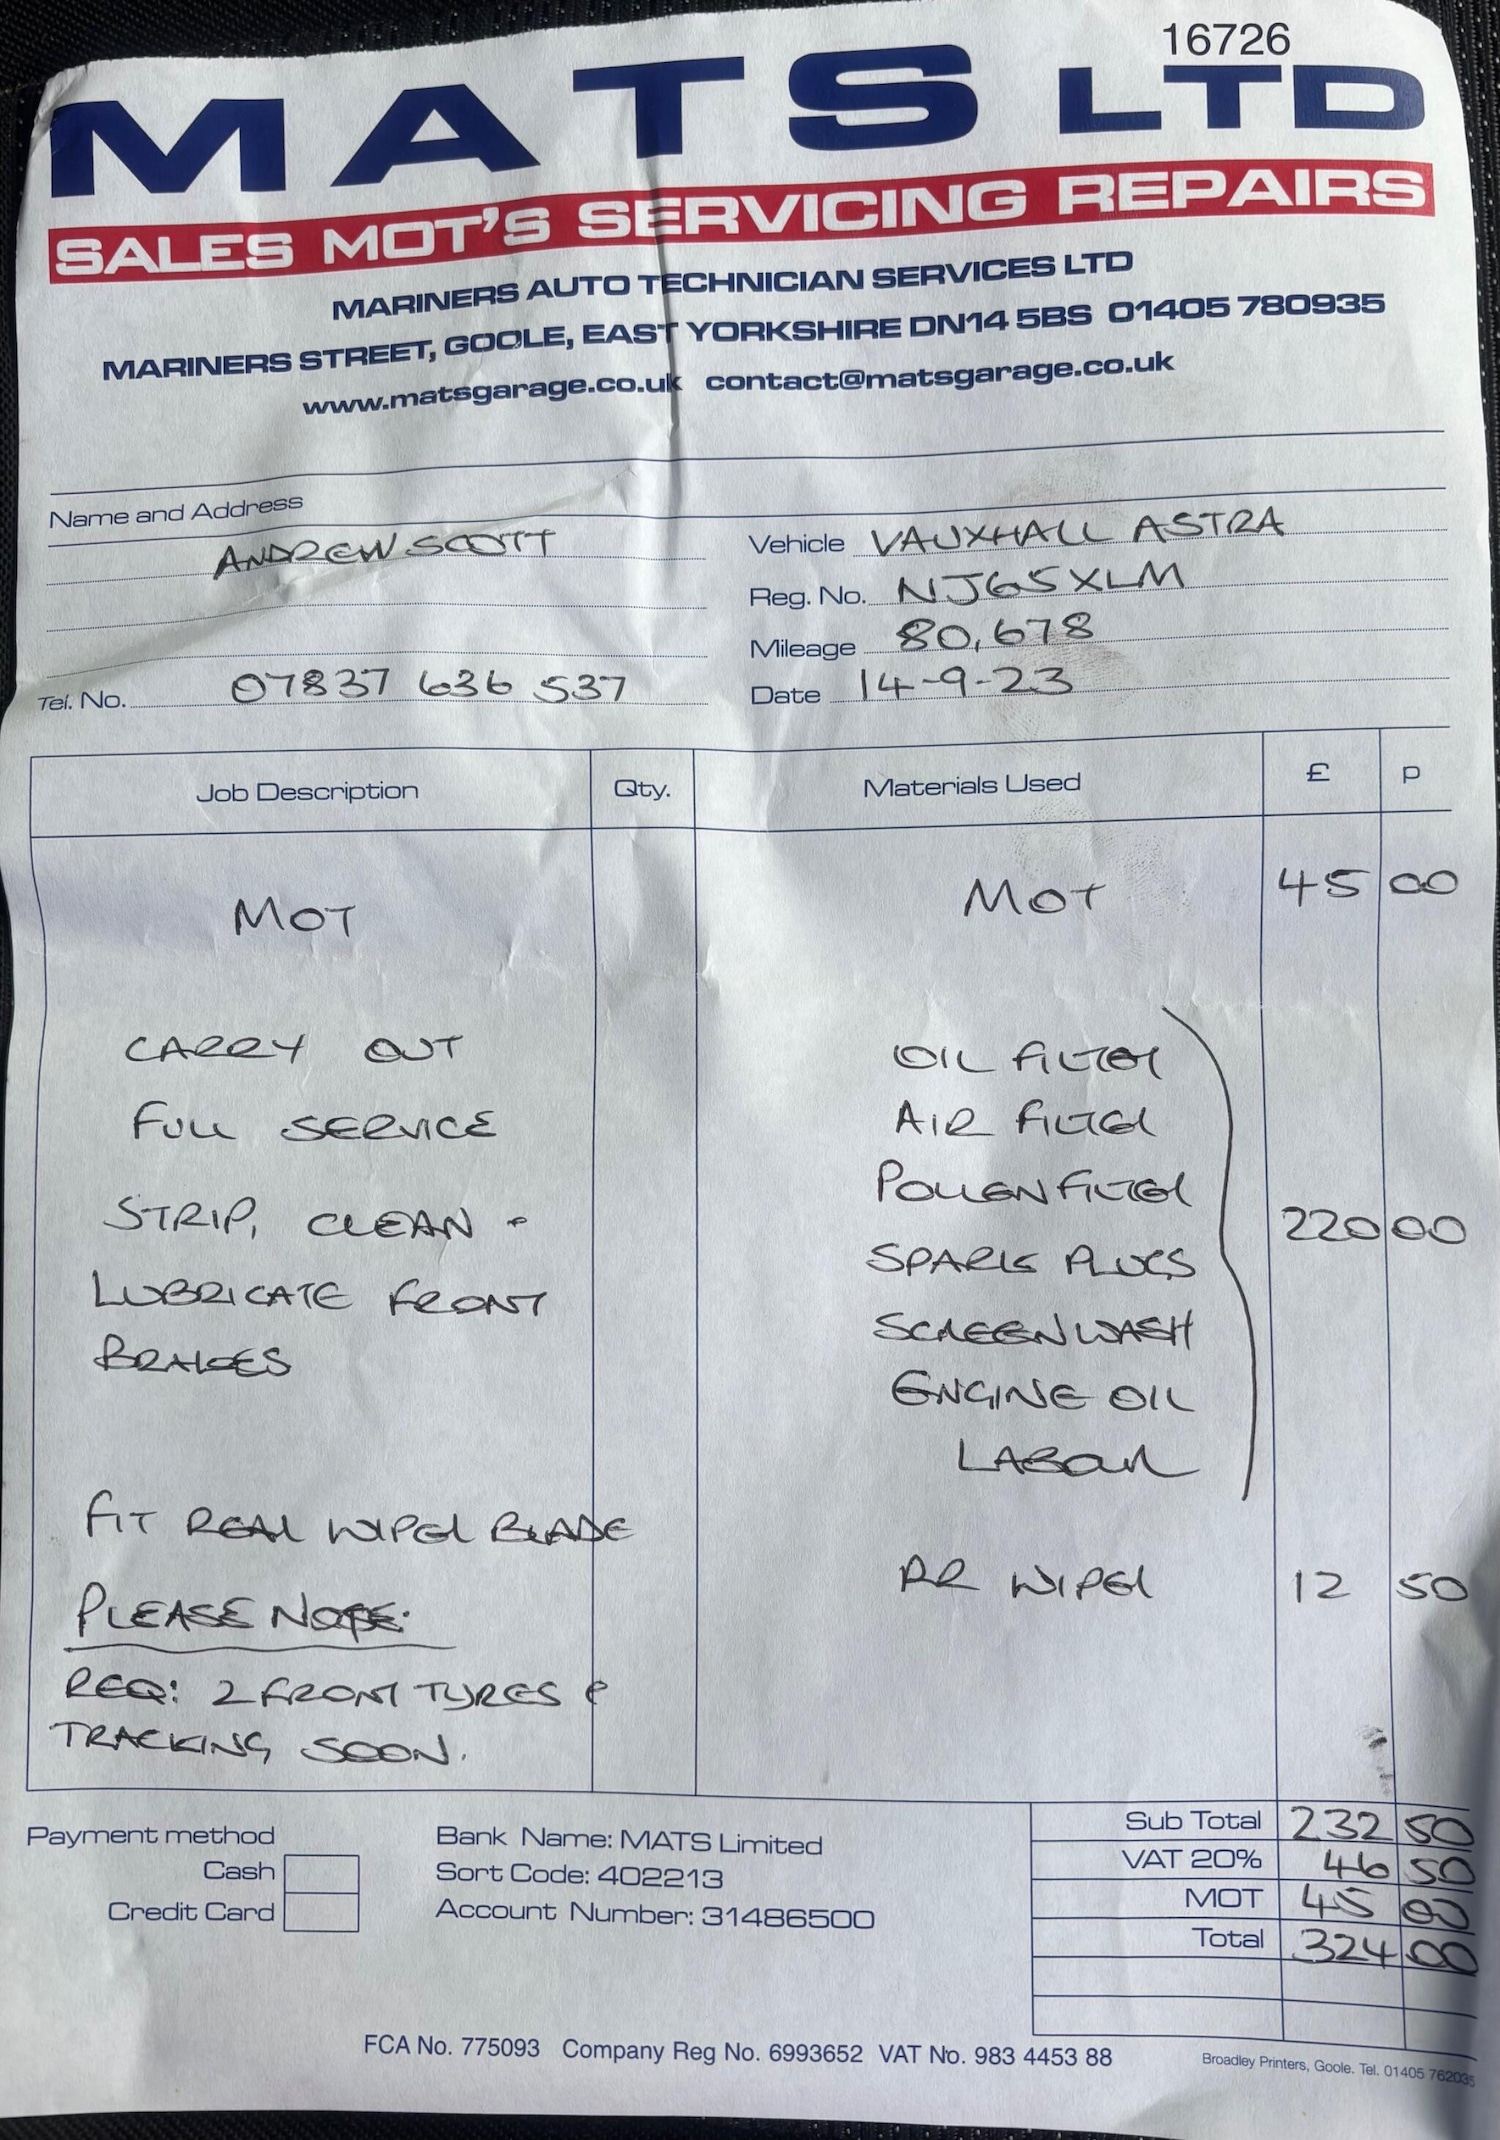 16726
MATS LTD
SALES MOT'S SERVICING REPAIRS
MARINERS AUTO TECHNICIAN SERVICES LTD
MARINERS STREET, GOOLE, EAST YORKSHIRE DN14 5BS 01405 780935
www.matsgarage.co.uk contact@matsgarage.co.uk
Name and Address
ANDREW SCOTT
Tel. No. 07837 636 537
Vehicle VAUXHALL ASTRA
Reg. No. NJ65XLM
Mileage 80,678
Date 14-9-23
Job Description Qty. Materials Used £ p
MOT MOT 45 00
CARRY OUT
FULL SERVICE
STRIP, CLEAN &
LUBRICATE FRONT
BRAKES
OIL FILTER
AIR FILTER
POLLEN FILTER
SPARK PLUGS
SCREENWASH
ENGINE OIL
LABOUR
220 00
FIT REAR WIPER BLADE
RR WIPER 12 50
PLEASE NOTE:
REQ: 2 FRONT TYRES &
TRACKING SOON.
Payment method
Cash
Credit Card
Bank Name: MATS Limited
Sort Code: 402213
Account Number: 31486500
Sub Total 232 50
VAT 20% 46 50
MOT 45 00
Total 324 00
FCA No. 775093 Company Reg No. 6993652 VAT No. 983 4453 88
Broadley Printers, Goole. Tel. 01405 762035